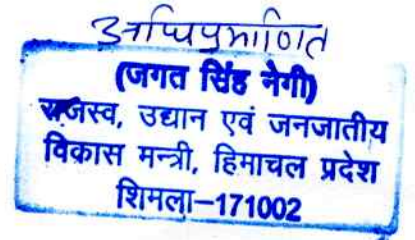 अधिप्रमाणित
(जगत सिंह नेगी)
राजस्व, उद्यान एवं जनजातीय
विकास मन्त्री, हिमाचल प्रदेश
शिमला-171002